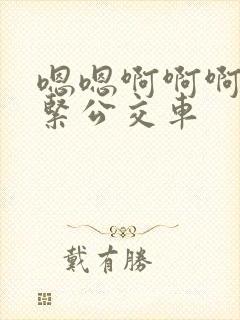 嗯嗯啊啊啊
緊公交車
戴有勝